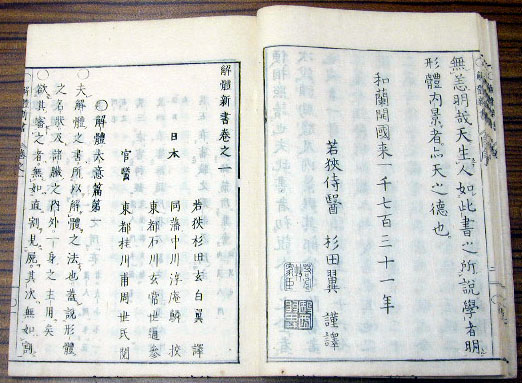 無恙明哉天生人如此書之所說學者明
形體內景者亦天之德也
和蘭開國来一千七百三十一年
若狹侍醫 杉田翼 謹譯
解體新書卷之一
若狹杉田玄白翼 譯
日本 同藩中川淳庵鱗 校
東都石川玄常世通 參
官醫 東都桂川甫周世民 閱
○解體大意篇第一
○夫解體之書所以解體之法也蓋說形體
之名狀及諸臟之內外一身之主用矣
欲其審之者無如直割見屍其次無如割